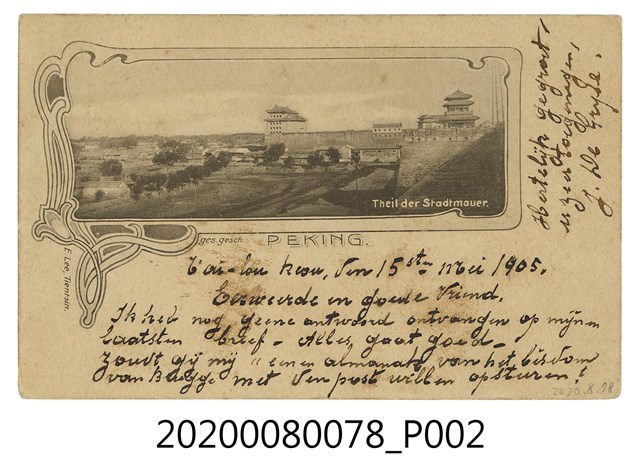 Theil der Stadtmauer.
ges. gesch.
PEKING.
F. Lee, Tientsin.
den 15sten Mei 1905.
Eerweerde en goede Vriend,
Ik heb nog geene antwoord ontvangen op mijnen
laatsten brief - Alles gaat goed -
zoudt gij mij eenen almanak van het bisdom
van Brugge met den post willen opsturen!
Hertelijk gegroet
J. De
2020.8.78
20200080078_P002